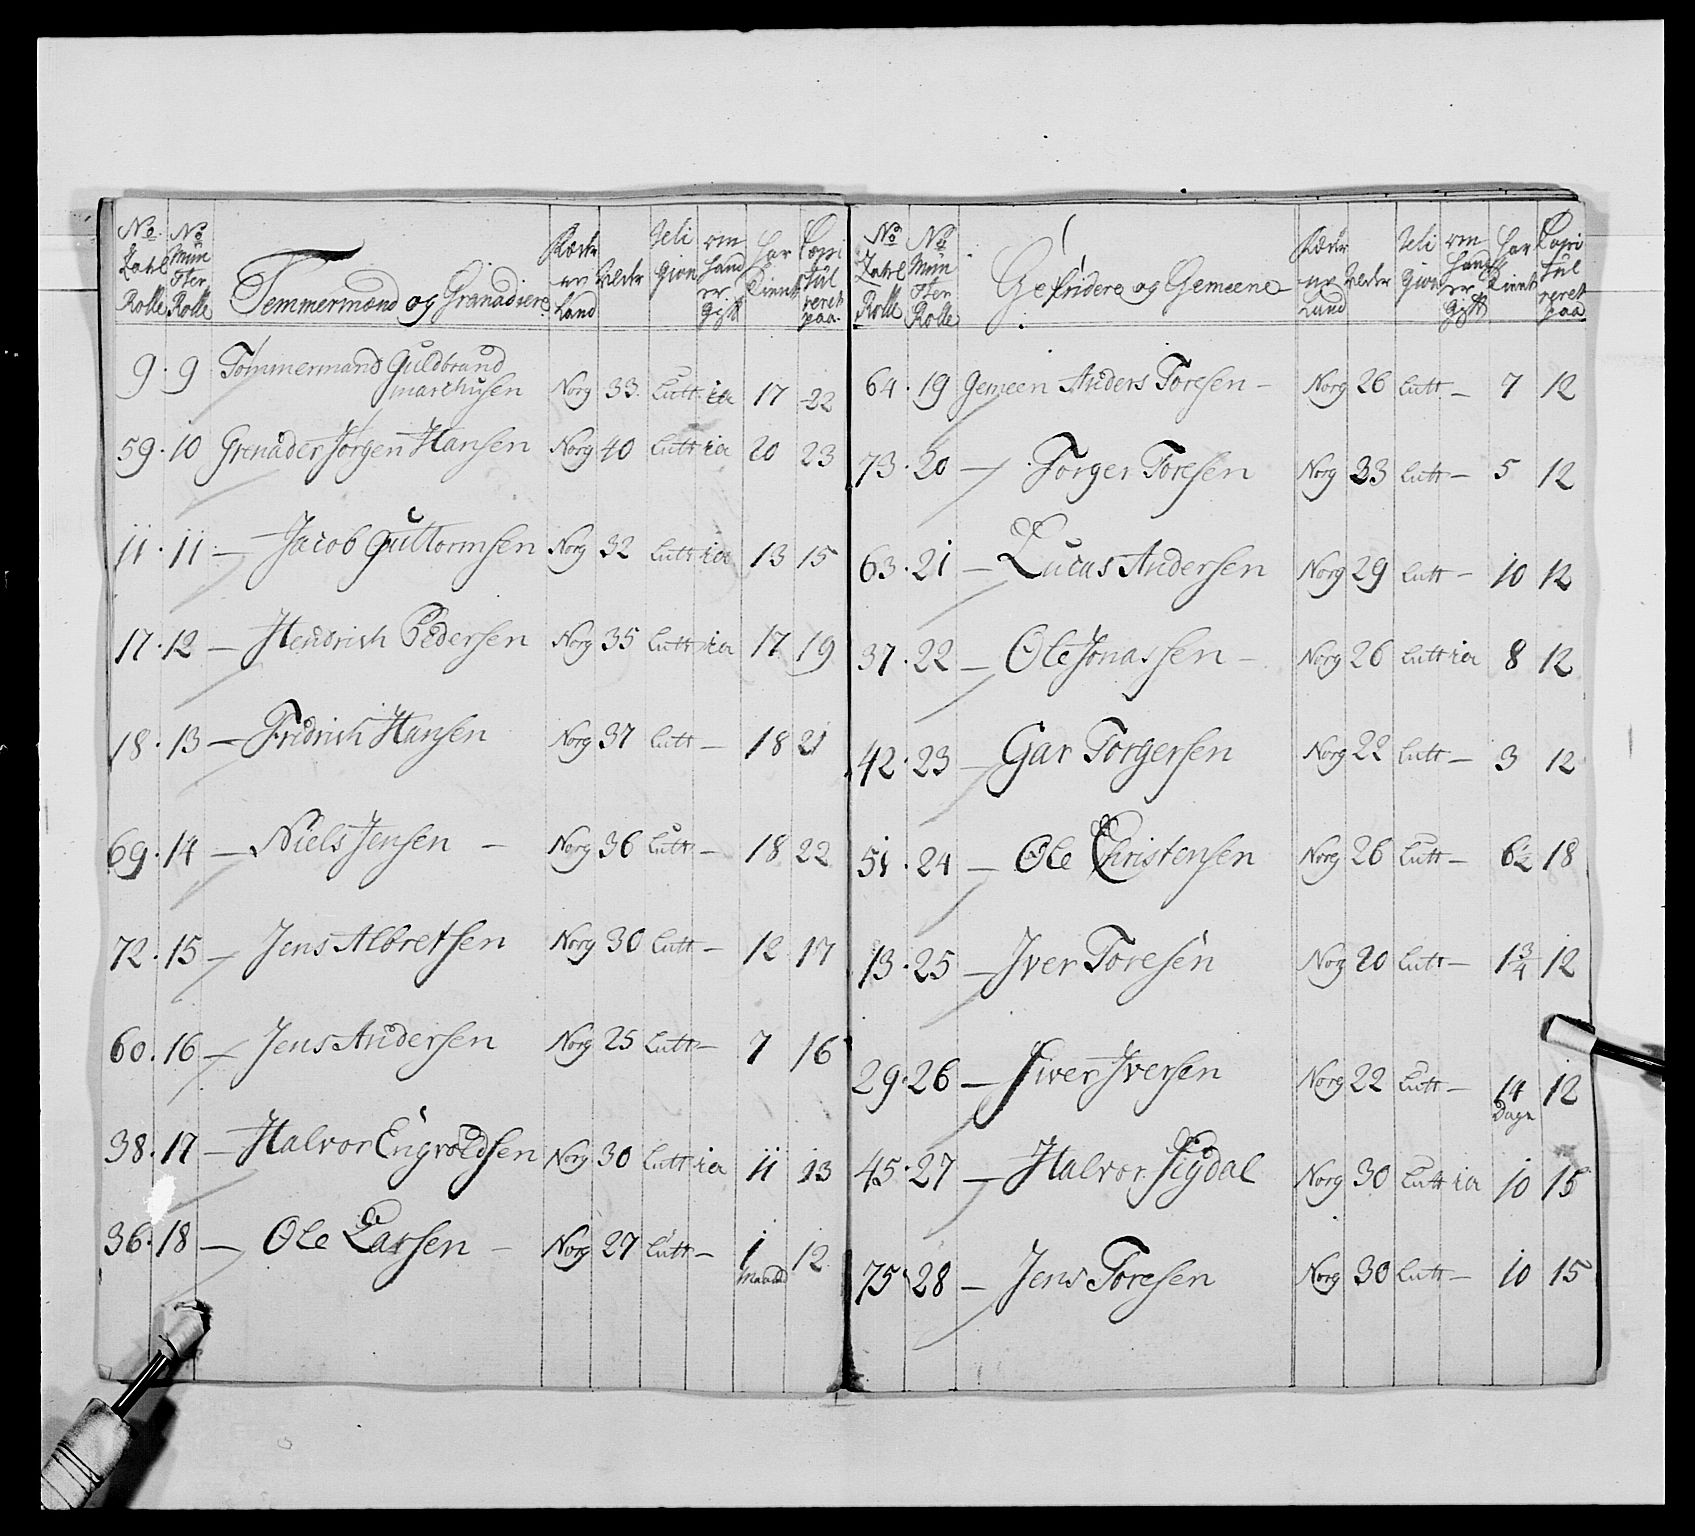 No Zahl Rolle | No Mün ster Rolle | Temmermænd og Granadiere | Føede Land | Alder | Reli gion | om hand er gift | har tient | Capi tul veret paa
9 · 9 Tømmermand Guldbrand
Marthusen Norg 33 Lutt ia 17 22
59 · 10 Grenader Jørgen Hansen Norg 40 Lutt ia 20 23
11 · 11 — Jacob Guttormsen Norg 32 Lutt ia 13 15
17 · 12 — Hendrich Pedersen Norg 35 Lutt ia 17 19
18 · 13 — Fridrich Hansen Norg 37 Lutt — 18 21
69 · 14 — Niels Jensen — Norg 36 Lutt — 18 22
72 · 15 — Jens Albretsen Norg 30 Lutt — 12 17
60 · 16 — Jens Andersen Norg 25 Lutt — 7 16
38 · 17 — Halvor Engvoldsen Norg 30 Lutt ia 11 13
36 · 18 — Ole Larsen — Norg 27 Lutt — 1 12
Maaned
No Zahl Rolle | No Mün ster Rolle | Gefridere og Gemeene | Land | Alder | Reli gion | om hand er gift | har tient | Capi tul veret paa
64 · 19 Gemeen Anders Toresen — Norg 26 Lutt — 7 12
73 · 20 — Torger Toresen Norg 33 Lutt — 5 12
63 · 21 — Lucas Andersen Norg 29 Lutt — 10 12
37 · 22 — Ole Jonassen — Norg 26 Lutt ia 8 12
42 · 23 — Gar Torgersen Norg 22 Lutt — 3 12
51 · 24 — Ole Christensen Norg 26 Lutt — 6½ 18
13 · 25 — Iver Toresen Norg 20 Lutt — 1¾ 12
29 · 26 — Siver Iversen Norg 22 Lutt — 14 12
Dage
45 · 27 — Halvor Sigdal Norg 30 Lutt ia 10 15
75 · 28 — Jens Toresen Norg 30 Lutt — 10 15